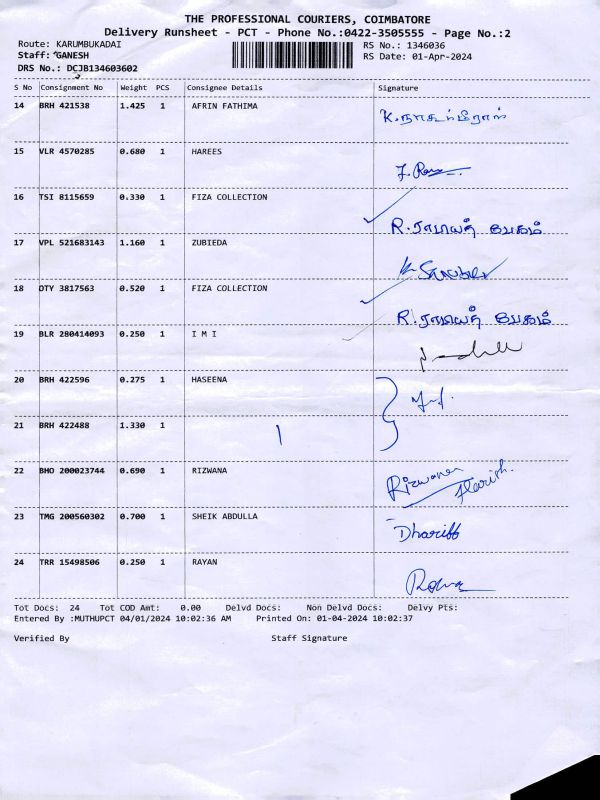 THE PROFESSIONAL COURIERS, COIMBATORE
Delivery Runsheet - PCT - Phone No.:0422-3505555 - Page No.:2
Route: KARUMBUKADAI RS No.: 1346036
Staff: GANESH RS Date: 01-Apr-2024
DRS No.: DCJB134603602
S No Consignment No Weight PCS Consignee Details Signature
14 BRH 421538 1.425 1 AFRIN FATHIMA
15 VLR 4570285 0.680 1 HAREES
16 TSI 8115659 0.330 1 FIZA COLLECTION
R. ராமலத் பேகம்
17 VPL 521683143 1.160 1 ZUBIEDA
18 DTY 3817563 0.520 1 FIZA COLLECTION
R. ராமலத் பேகம்
19 BLR 280414093 0.250 1 I M I
20 BRH 422596 0.275 1 HASEENA
21 BRH 422488 1.330 1
22 BHO 200023744 0.690 1 RIZWANA
Rizwana
23 TMG 200560302 0.700 1 SHEIK ABDULLA
Dhariff
24 TRR 15498506 0.250 1 RAYAN
Tot Docs: 24 Tot COD Amt: 0.00 Delvd Docs: Non Delvd Docs: Delvy Pts:
Entered By :MUTHUPCT 04/01/2024 10:02:36 AM Printed On: 01-04-2024 10:02:37
Verified By Staff Signature